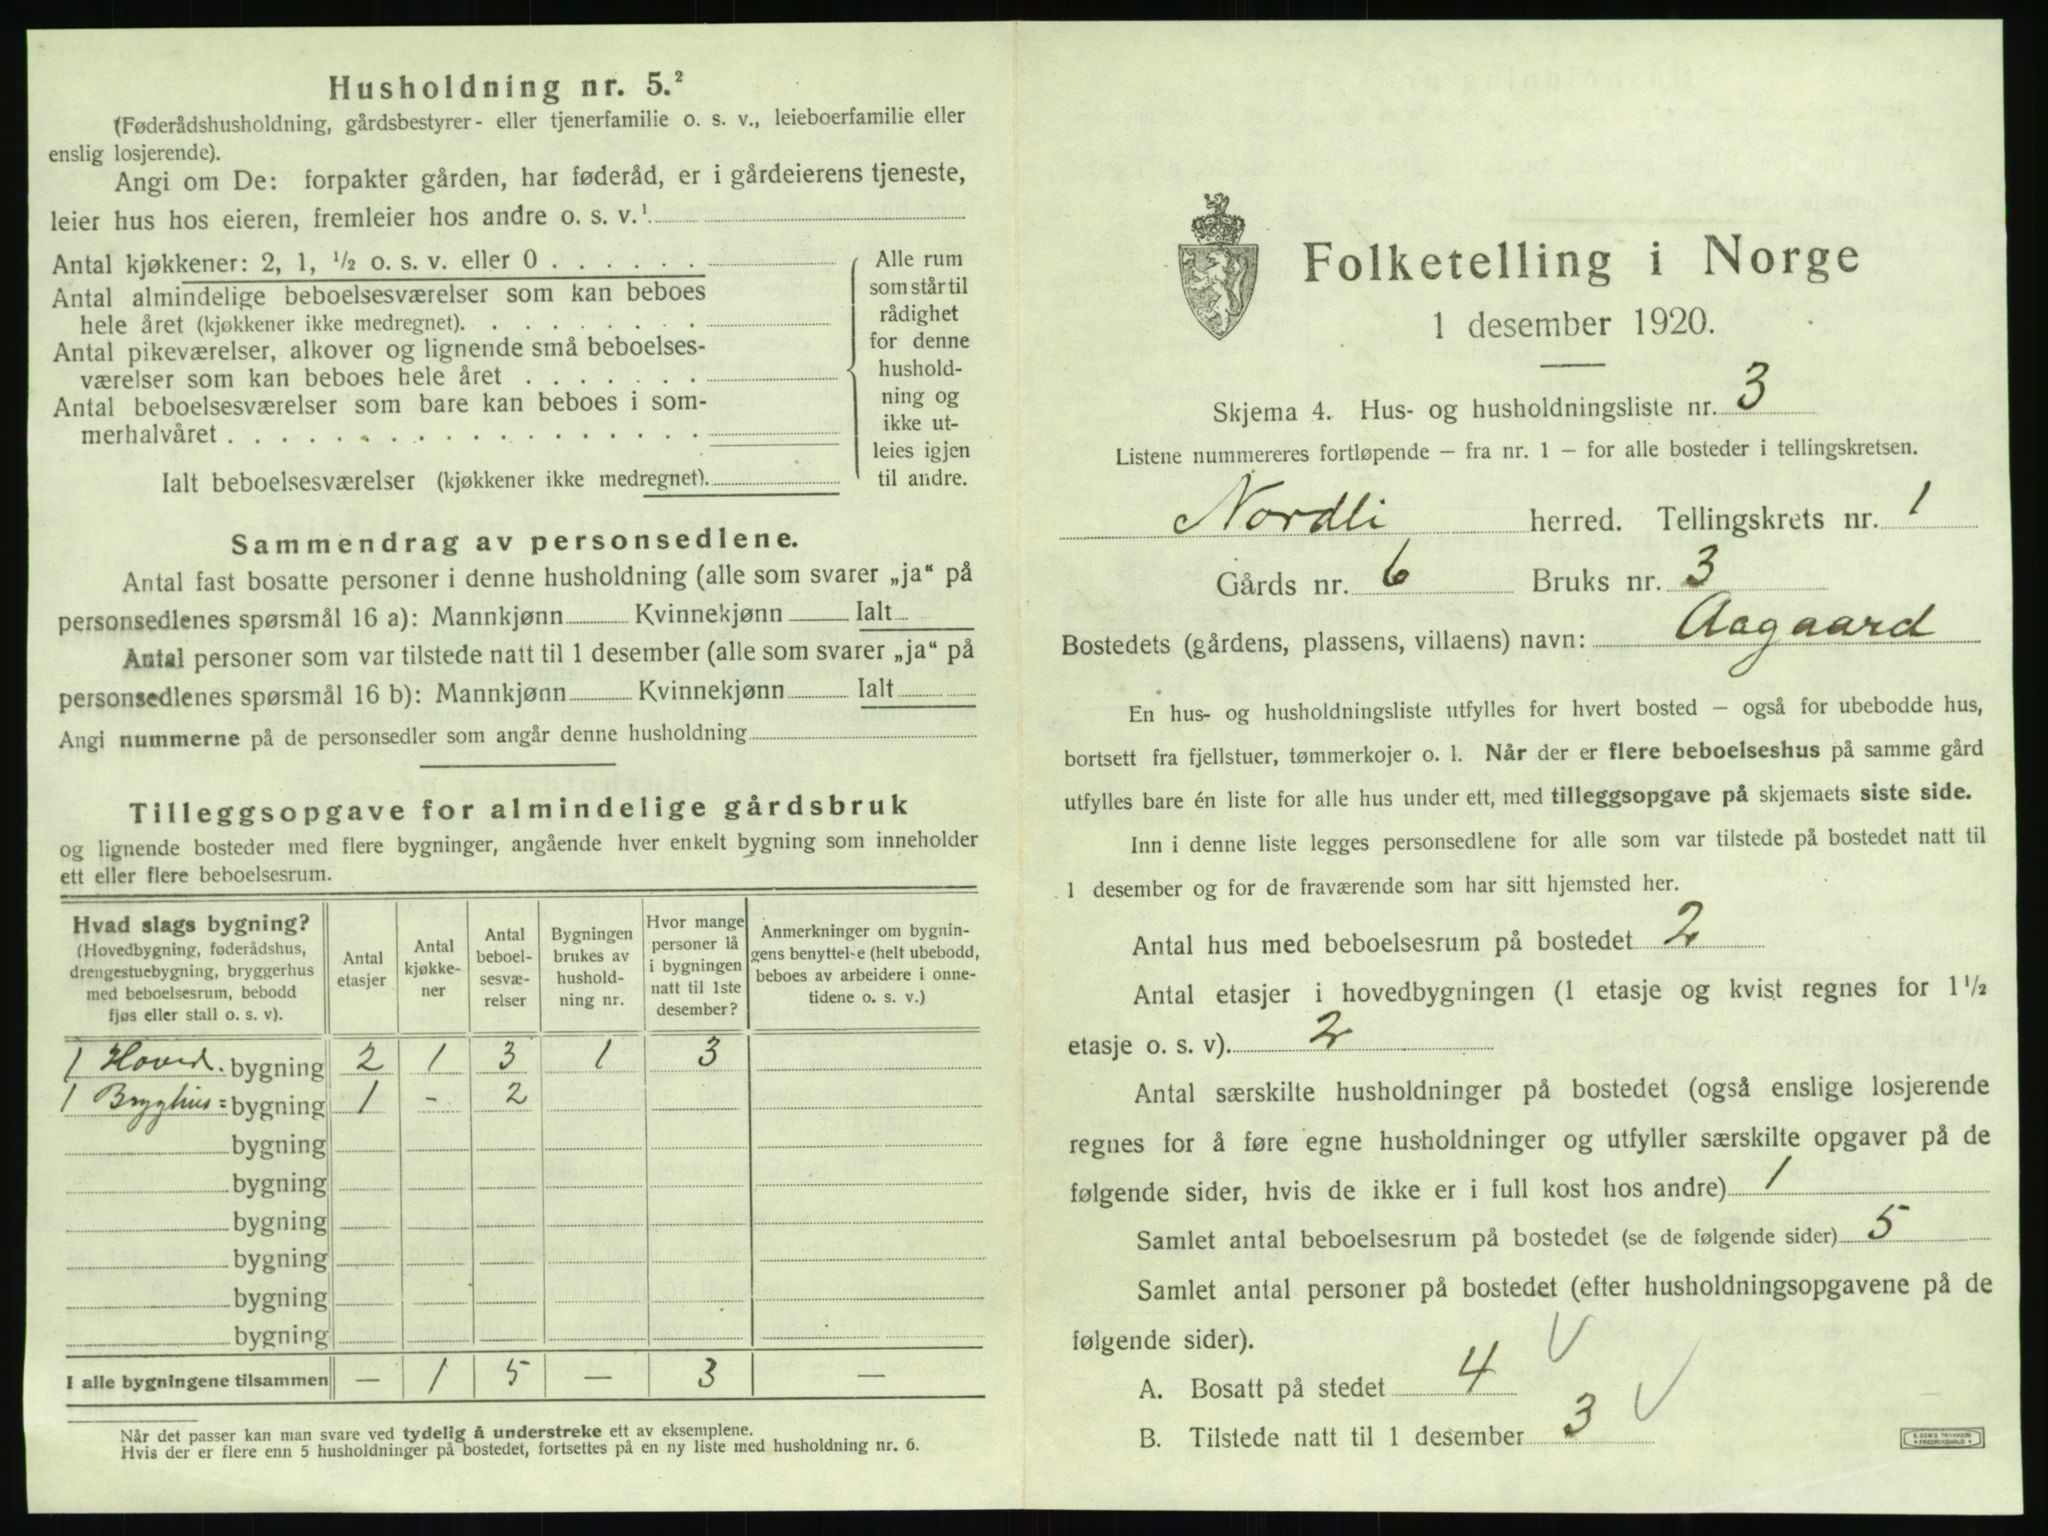 Husholdning nr. 5.²
(Føderådshusholdning, gårdsbestyrer- eller tjenerfamilie o. s. v., leieboerfamilie eller
enslig losjerende).
Angi om De: forpakter gården, har føderåd, er i gårdeierens tjeneste,
leier hus hos eieren, fremleier hos andre o. s. v.¹
Antal kjøkkener: 2, 1, ½ o. s. v. eller 0 . . . . . .
Antal almindelige beboelsesværelser som kan beboes
hele året (kjøkkener ikke medregnet). . . . . . . . .
Antal pikeværelser, alkover og lignende små beboelses-
værelser som kan beboes hele året . . . . . . .
Antal beboelsesværelser som bare kan beboes i som-
merhalvåret . . . . . . . . . . . . . . . . .
Ialt beboelsesværelser (kjøkkener ikke medregnet).
Alle rum
som står til
rådighet
for denne
hushold-
ning og
ikke ut-
leies igjen
til andre.
Sammendrag av personsedlene.
Antal fast bosatte personer i denne husholdning (alle som svarer „ja“ på
personsedlenes spørsmål 16 a): Mannkjønn Kvinnekjønn Ialt
Antal personer som var tilstede natt til 1 desember (alle som svarer „ja“ på
personsedlenes spørsmål 16 b): Mannkjønn Kvinnekjønn Ialt
Angi nummerne på de personsedler som angår denne husholdning
Tilleggsopgave for almindelige gårdsbruk
og lignende bosteder med flere bygninger, angående hver enkelt bygning som inneholder
ett eller flere beboelsesrum.
Hvad slags bygning?
(Hovedbygning, føderådshus,
drengestuebygning, bryggerhus
med beboelsesrum, bebodd
fjøs eller stall o. s. v).
Antal
etasjer
Antal
kjøkke-
ner
Antal
beboel-
sesvæ-
relser
Bygningen
brukes av
hushold-
ning nr.
Hvor mange
personer lå
i bygningen
natt til 1ste
desember?
Anmerkninger om bygnin-
gens benyttelse (helt ubebodd,
beboes av arbeidere i onne-
tidene o. s. v.)
1 Hoved. bygning 2 1 3 1 3
1 Brygghus= bygning 1 - 2
bygning
bygning
bygning
bygning
bygning
bygning
I alle bygningene tilsammen — 1 5 — 3 —
Når det passer kan man svare ved tydelig å understreke ett av eksemplene.
Hvis der er flere enn 5 husholdninger på bostedet, fortsettes på en ny liste med husholdning nr. 6.
Folketelling i Norge
1 desember 1920.
Skjema 4. Hus- og husholdningsliste nr. 3
Listene nummereres fortløpende – fra nr. 1 – for alle bosteder i tellingskretsen.
Nordli herred. Tellingskrets nr. 1
Gårds nr. 6 Bruks nr. 3
Bostedets (gårdens, plassens, villaens) navn: Aagaard
En hus- og husholdningsliste utfylles for hvert bosted – også for ubebodde hus,
bortsett fra fjellstuer, tømmerkojer o. l. Når der er flere beboelseshus på samme gård
utfylles bare én liste for alle hus under ett, med tilleggsopgave på skjemaets siste side.
Inn i denne liste legges personsedlene for alle som var tilstede på bostedet natt til
1 desember og for de fraværende som har sitt hjemsted her.
Antal hus med beboelsesrum på bostedet 2
Antal etasjer i hovedbygningen (1 etasje og kvist regnes for 1½
etasje o. s. v). 2
Antal særskilte husholdninger på bostedet (også enslige losjerende
regnes for å føre egne husholdninger og utfyller særskilte opgaver på de
følgende sider, hvis de ikke er i full kost hos andre) 1
Samlet antal beboelsesrum på bostedet (se de følgende sider) 5
Samlet antal personer på bostedet (efter husholdningsopgavene på de
følgende sider).
A. Bosatt på stedet 4
B. Tilstede natt til 1 desember 3